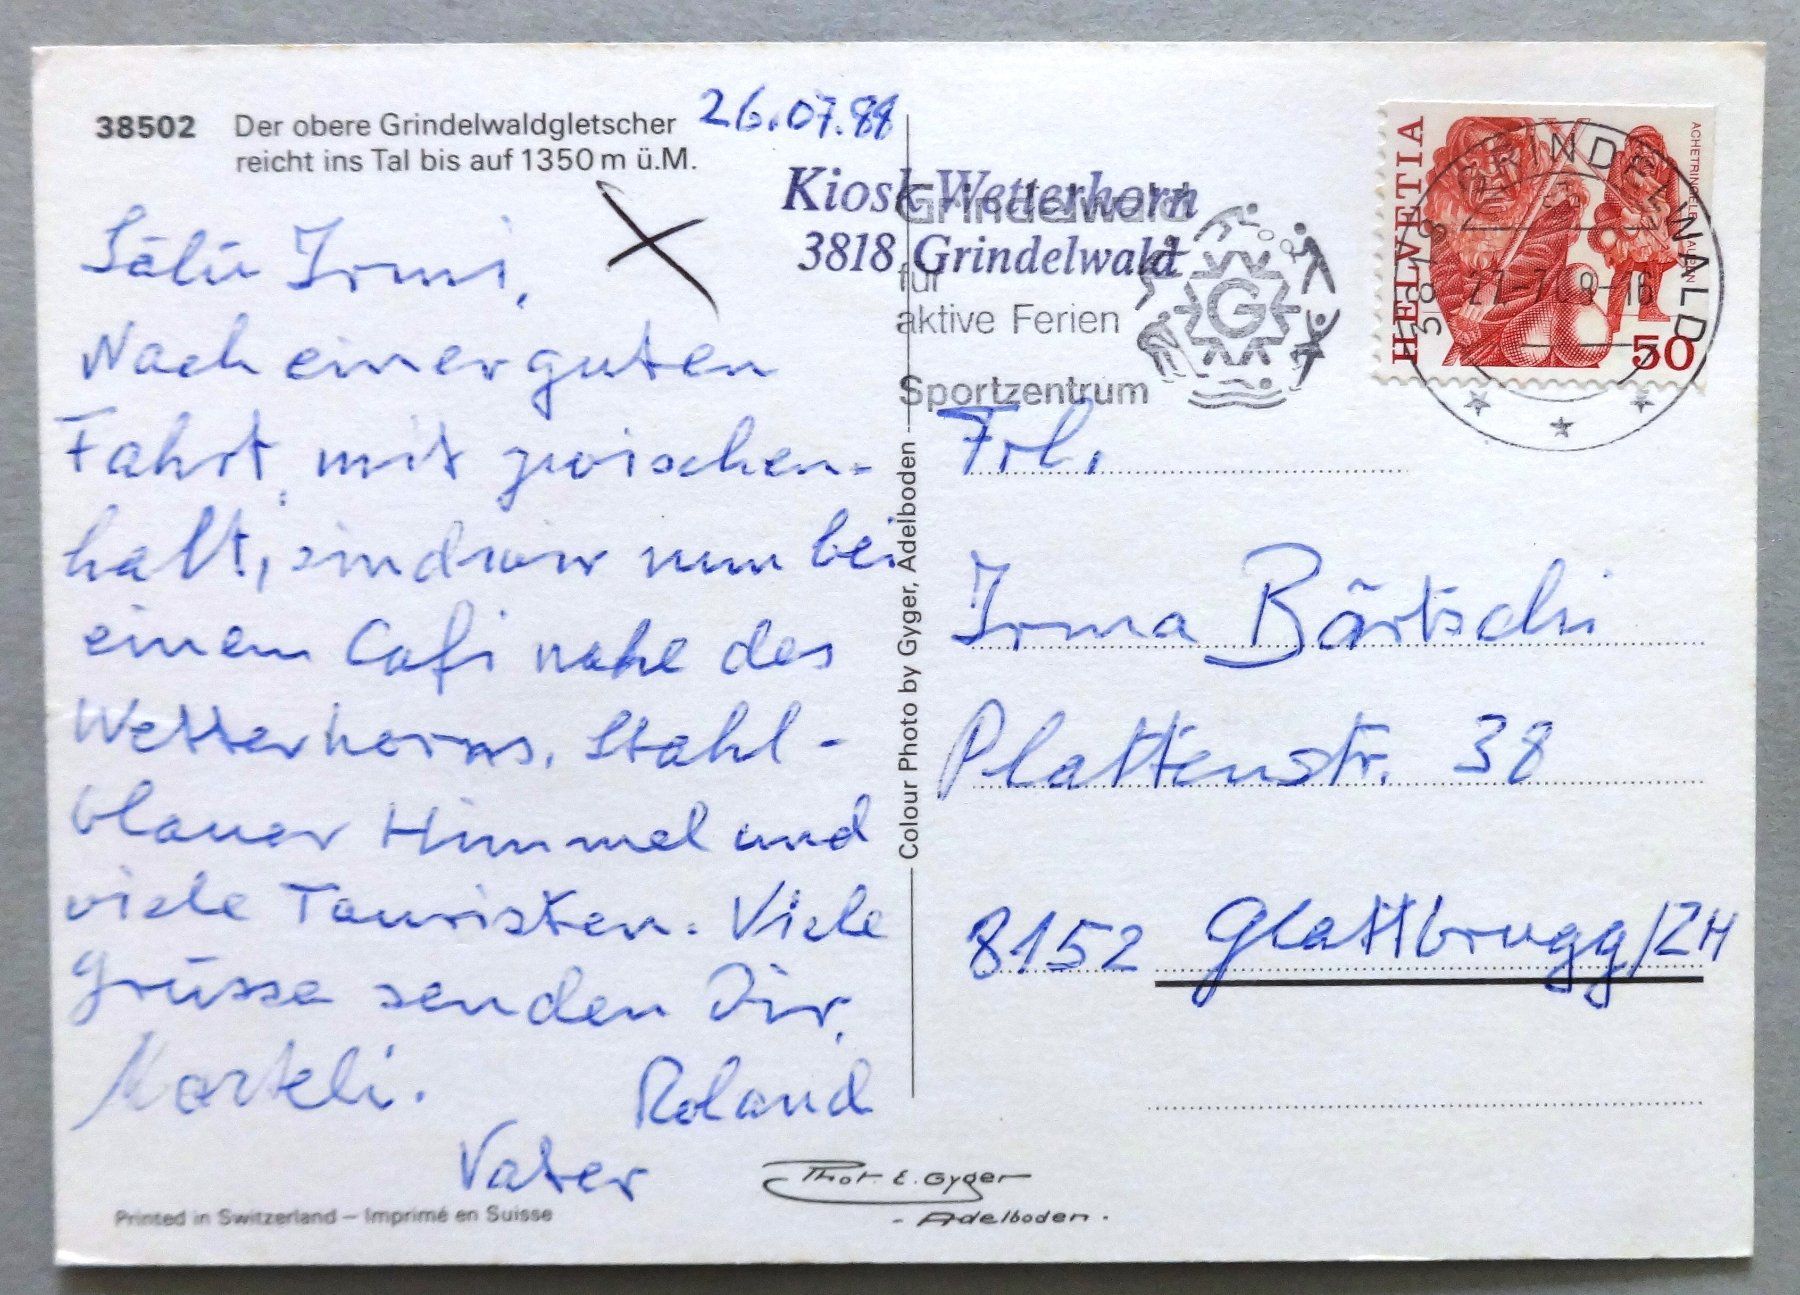 38502 Der obere Grindelwaldgletscher
reicht ins Tal bis auf 1350 m ü.M.
26.07.88
Kiosk Wetterhorn
3818 Grindelwald
Salü Irmi,
Nach einer guten
Fahrt, mit zwischen-
halt, sind wir nun bei
einem Cafi nahe des
Wetterhorns. Stahl-
blauer Himmel und
viele Touristen. Viele
Grüsse senden Dir,
Roland
Vater
Printed in Switzerland – Imprimé en Suisse
Colour Photo by Gyger, Adelboden
Phot. E. Gyger
- Adelboden.
Grindelwald
für
aktive Ferien
Sportzentrum
G
HELVETIA
50
3818 GRINDELWALD
Frl.
Irma Bärtschi
Plattenstr. 38
8152 Glattbrugg/ZH